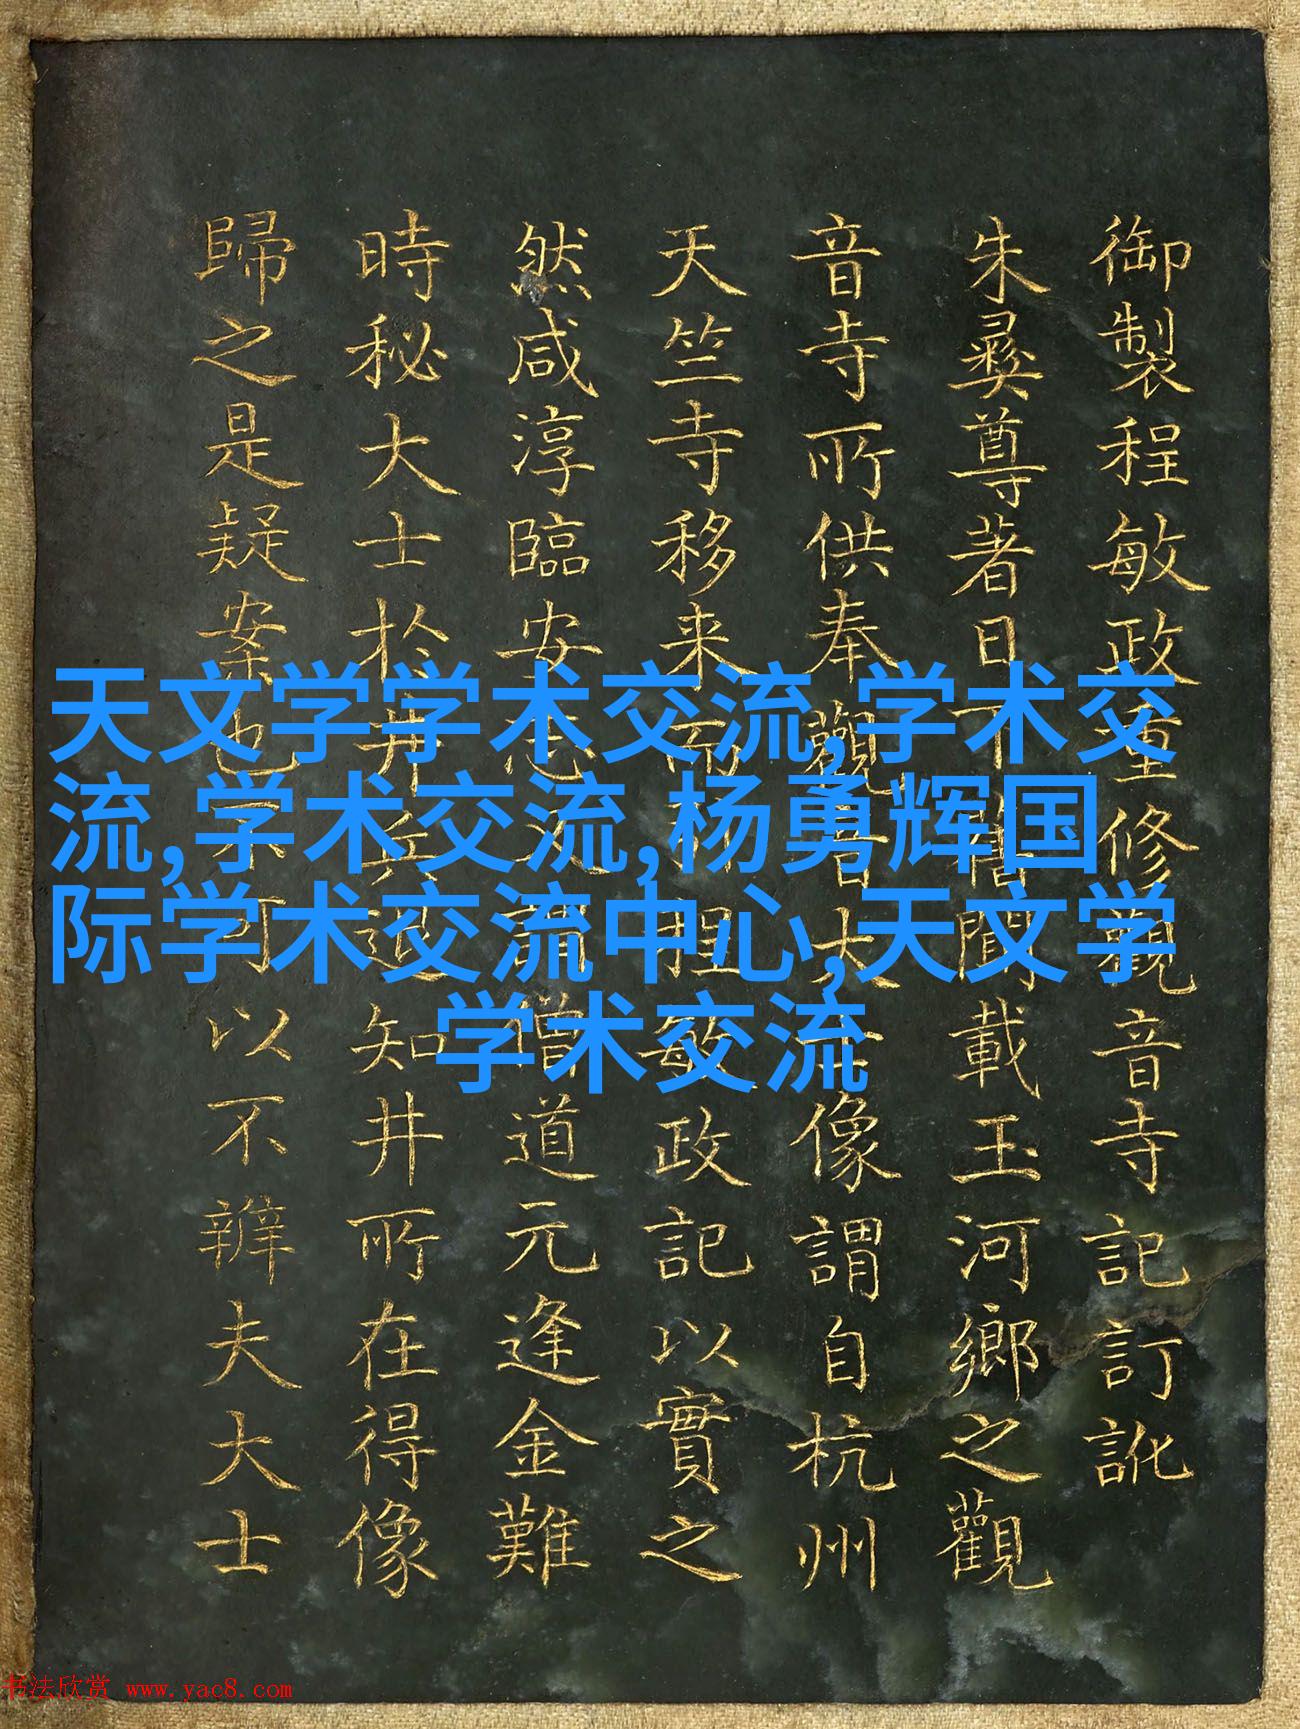 御製程敏政重修觀音寺記訂訛
朱彛尊著日下舊聞載玉河鄉之觀
音寺所供奉觀音大士像謂自杭州
天竺寺移来而程敏政記以實之
然咸淳臨安志又謂僧道元逢金難
時秘大士於井兵退知井所在得像
歸之是疑案也可以不辨夫大士
天文学学术交流,学术交
流,学术交流,杨勇辉国
际学术交流中心,天文学
学术交流
书法欣赏 www.yac8.com